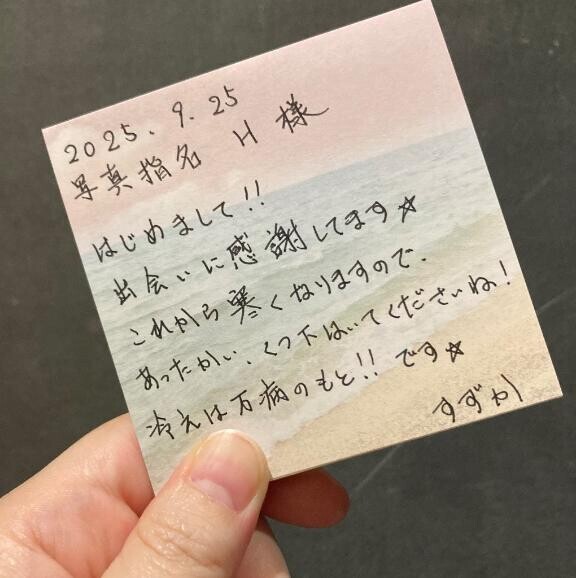 2025.9.25
写真指名 H 様
はじめまして!!
出会いに感謝してます☆
これから寒くなりますので、
あったかい、くつ下はいてくださいね!
冷えは万病のもと!! です☆
すずか